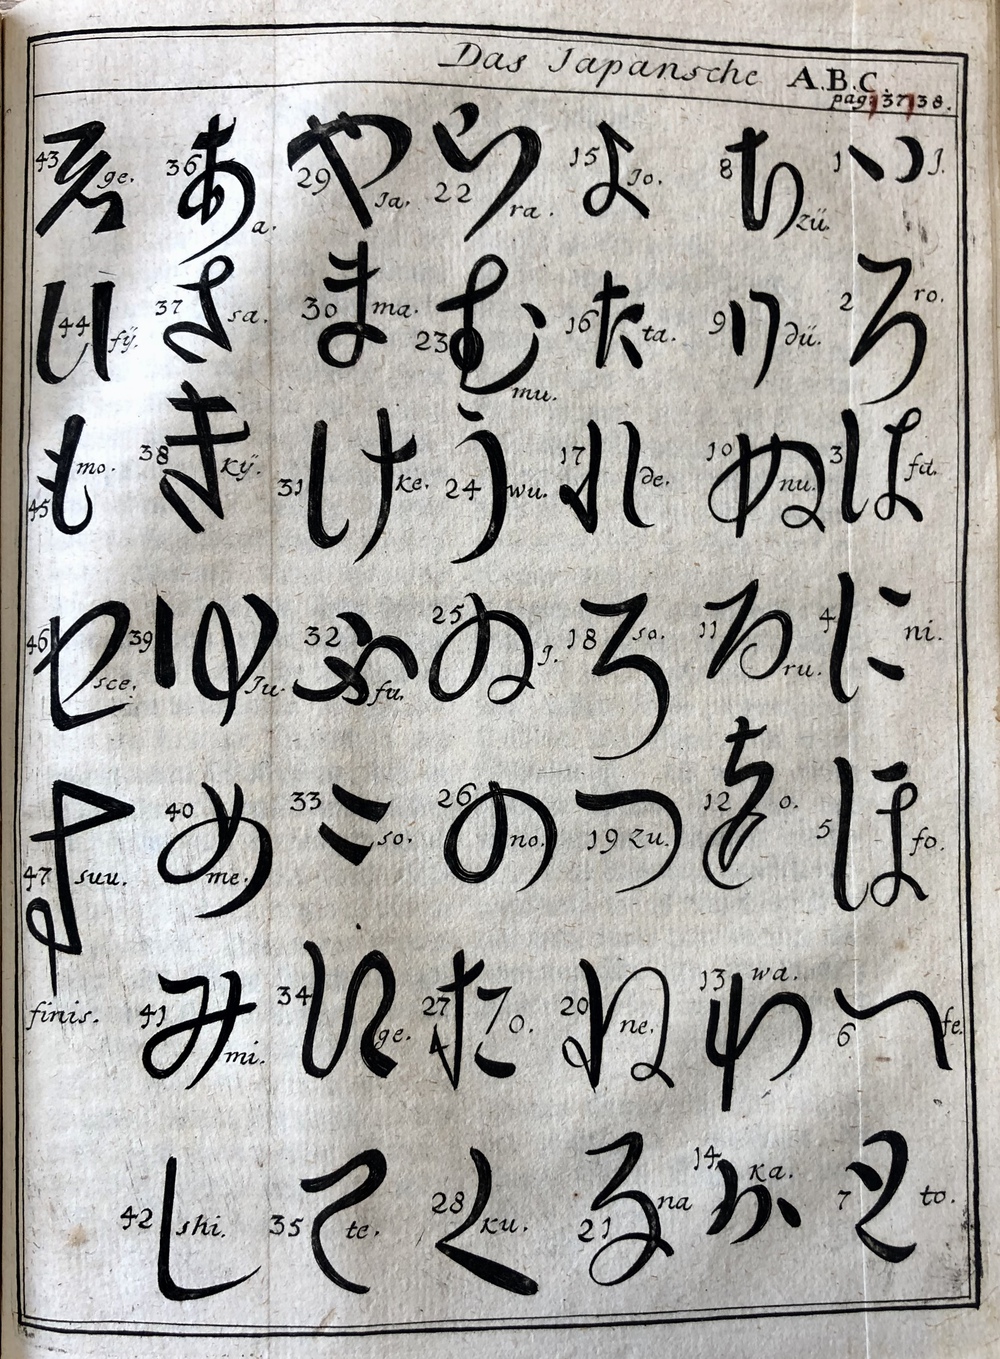 Das Japansche A.B.C.
pag. 37 38.
1 い J.
2 ろ ro.
3 は fa.
4 に ni.
5 ほ fo.
6 へ fe.
7 と to.
8 ち zü.
9 り dü.
10 ぬ nu.
11 る ru.
12 を o.
13 わ wa.
14 か ka.
15 よ Jo.
16 た ta.
17 れ de.
18 そ so.
19 つ zu.
20 ね ne.
21 な na
22 ら ra.
23 む mu.
24 う wu.
25 ゐ J.
26 の no.
27 お o.
28 く ku.
29 や Ja.
30 ま ma.
31 け ke.
32 ふ fu.
33 こ so.
34 え ge.
35 て te.
36 あ a.
37 さ sa.
38 き kÿ.
39 ゆ Ju.
40 め me.
41 み mi.
42 し shi.
43 ゑ ge.
44 ひ fÿ.
45 も mo.
46 せ sce.
47 す suu.
finis.